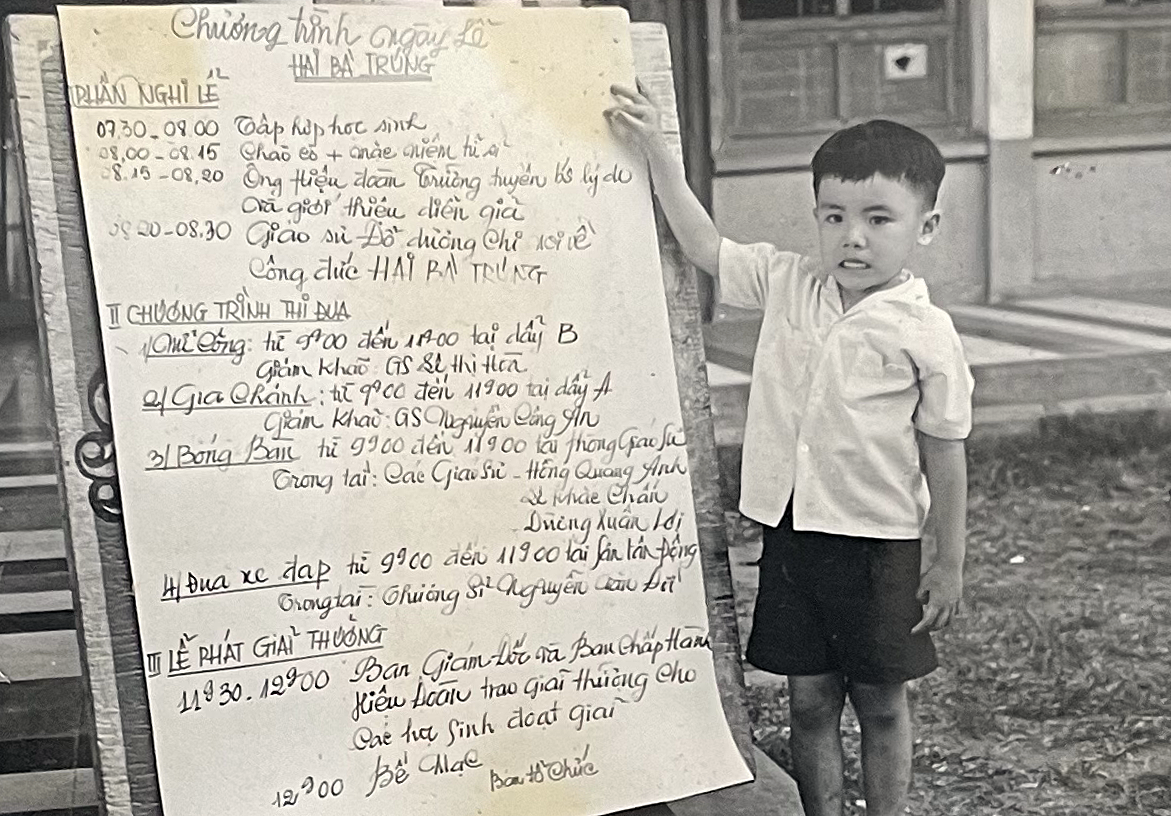 Chương trình ngày lễ
HAI BÀ TRƯNG
PHẦN NGHI LỄ
07.30-08.00 Tập hợp học sinh
08.00-08.15 Chào cờ + mặc niệm tử sĩ
08.15-08.20 Ông Hiệu đoàn Trưởng tuyên bố lý do
và giới thiệu diễn giả
08.20-08.30 Giáo sư Đỗ dường Chi nói về
Công đức HAI BÀ TRƯNG
II CHƯƠNG TRÌNH THI ĐUA
1/ Nữ Công: từ 9g00 đến 11g00 tại dãy B
Giám khảo: GS Lê thị Hoà
2/ Gia Chánh: từ 9g00 đến 11g00 tại dãy A
Giám khảo: GS Nguyễn Công An
3/ Bóng Bàn từ 9g00 đến 11g00 tại phòng Giáo Sư
Trọng tài: Các Giáo Sư - Hồng Quang Anh
Lê Khắc Chấn
Dương Xuân Lợi
4/ Đua xe đạp từ 9g00 đến 11g00 tại Sân
Trọng tài: Thượng Sĩ Nguyễn
III LỄ PHÁT GIẢI THƯỞNG
11g30-12g00 Ban Giám Đốc và Ban Chấp Hành
Hiệu Đoàn trao giải thưởng Cho
Các học sinh đoạt giải
12g00 Bế Mạc
Ban tổ chức